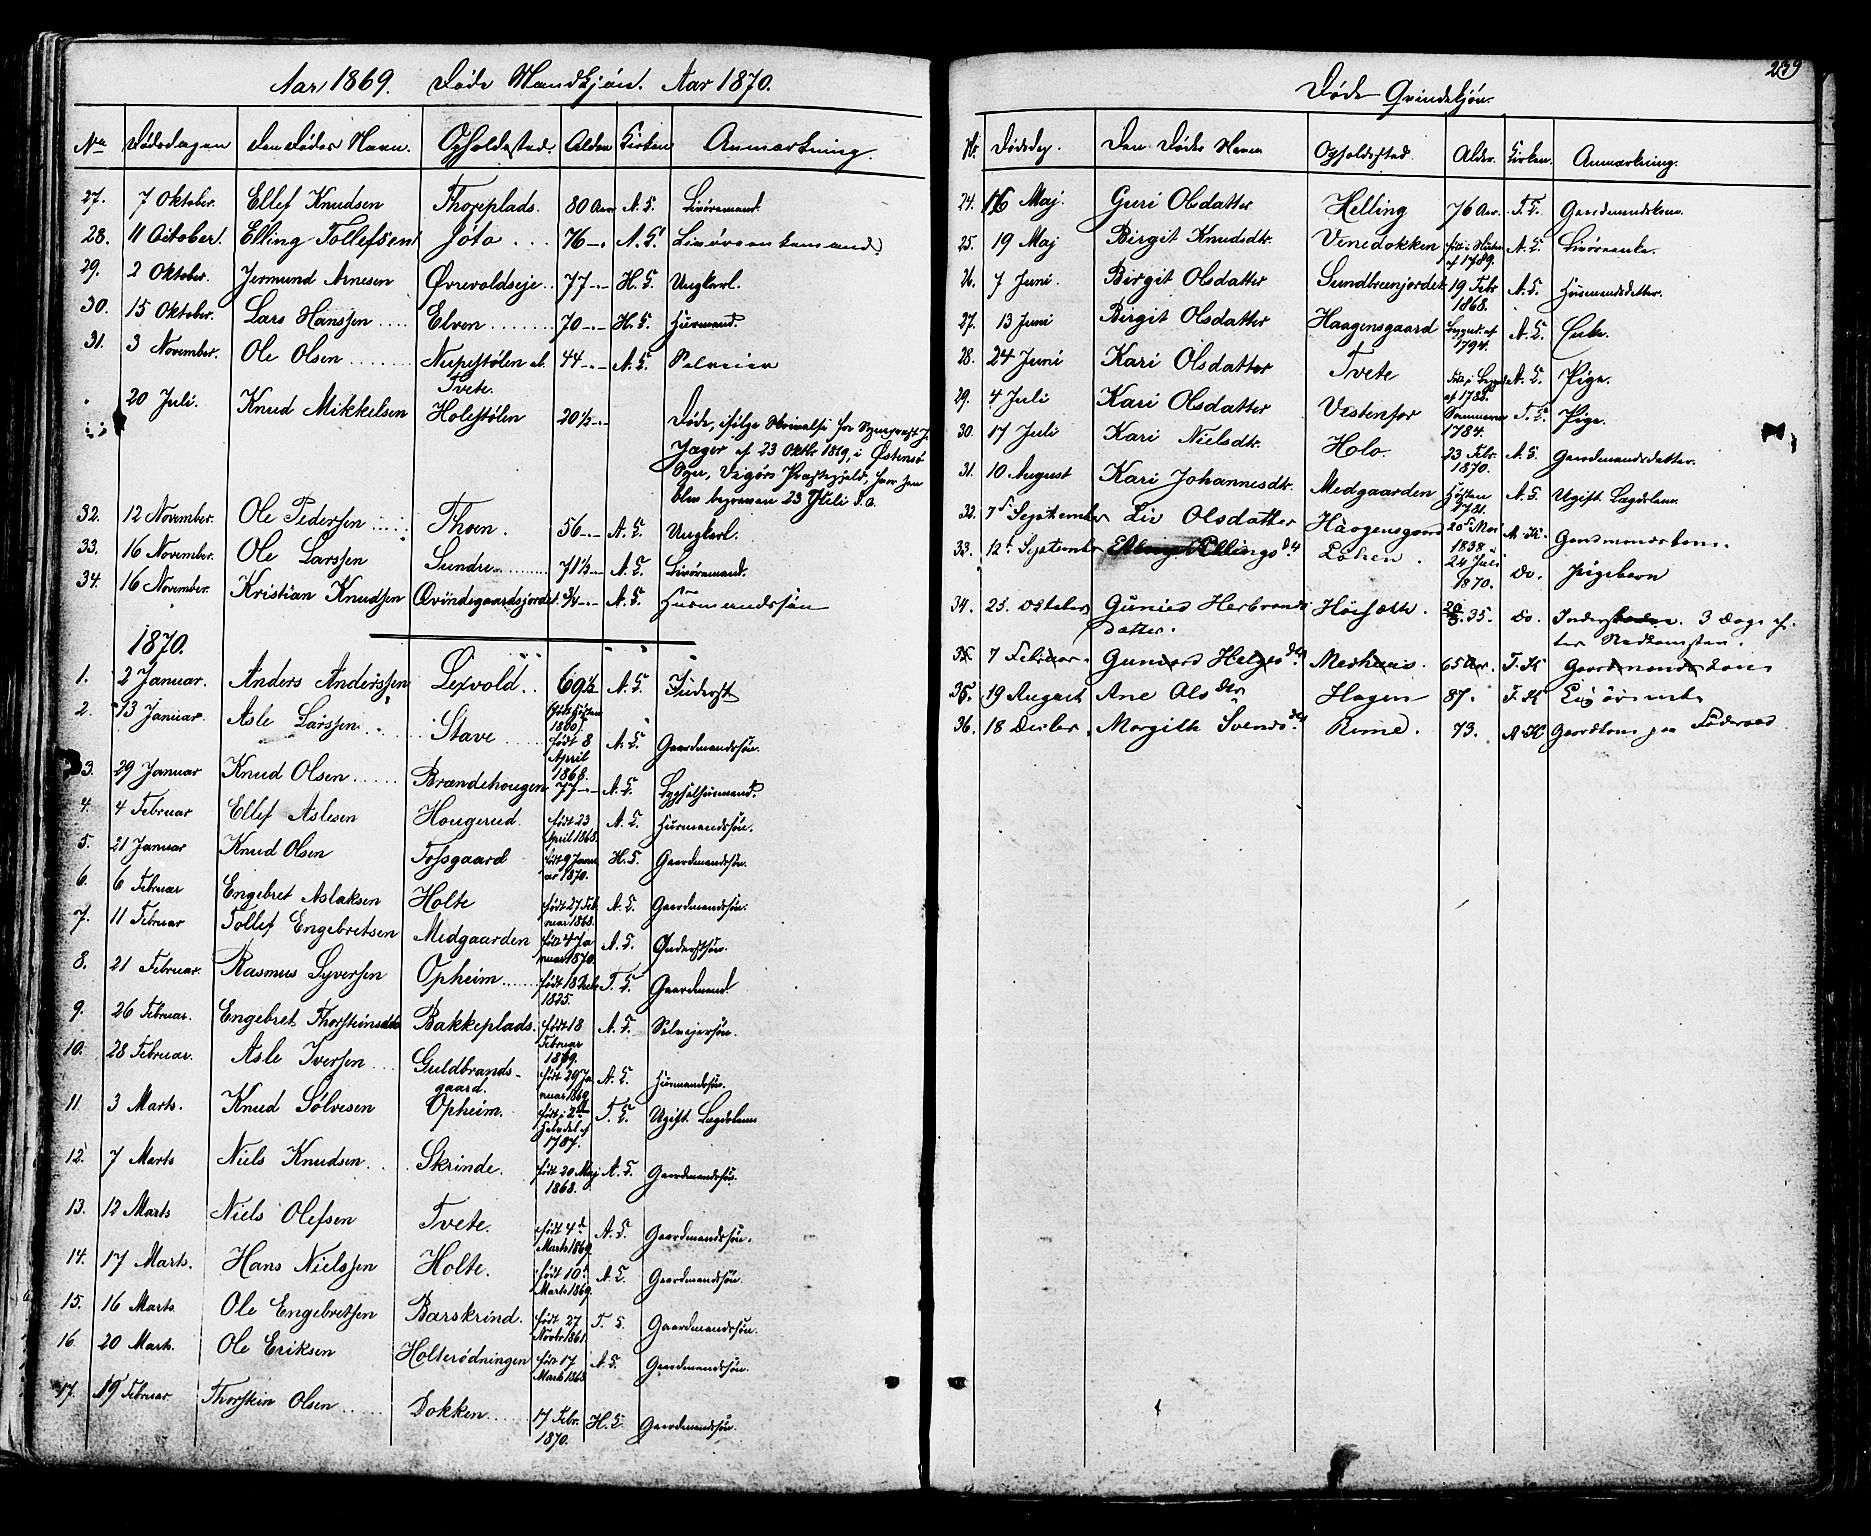 Aar 1869. Døde Mandkjøn. Aar 1870.
No Dødsdagen Den Dødes Navn. Opholdssted. Alder Kirken Anmærkning.
27. 7 Oktober. Ellef Knudsen Thoreplads. 80 Aar A. K. Livøremand.
28. 11 October. Elling Tollefsen Jøto 76 -„- A. K. Livørsenkemand.
29. 2 Oktober. Jermund Arnesen Øvrevoldseje 77 -„- H. K. Ungkarl.
30. 15 Oktober. Lars Hanssen Elven 70 -„- H. K. Husmand.
31. 3 November. Ole Olsen Nupestølen al. Tvete. 44 -„- A. K. Selveier
20 Juli. Knud Mikkelsen Holestølen 20½ -„- Døde, ifølge Skrivelse fra Sognepræst J.
Jager af 23 Oktbr 1869, i Østensø
Sogn, Vigørs Præstegjeld, hvor han
blev begraven 23 Juli s. a.
32. 12 November. Ole Pedersen Thoen. 56 -„- A. K. Ungkarl.
33. 16 November. Ole Larssen Sundre 71½ -„- A. K. Livøremand.
34. 16 November. Kristian Knudsen Qvindegaardsjordet ¾ -„- A. K. Husmandssøn
1870.
1. 2 Januar. Anders Anderssen Lexvold 69½ A. K. Inderst
2. 13 Januar. Asle Larssen Stave født 8 April 1868. A. K. Gaardmandssøn.
3. 29 Januar Knud Olsen Brændehougen 77 -„- A. K. Bygselhusmand.
4. 4 Februar Ellef Aslesen Hougerud. født 23 April 1868. A. K. Husmandssøn.
5. 21 Januar Knud Olsen Fossgaard født 9 Januar 1870. H. K. Gaardmandssøn.
6. 6 Februar Engebret Aslaksen Holte født 27 Februar 1868. A. K. Gaardmandssøn.
7. 11 Februar Tollef Engebretsen Midgaarden født 4 Januar 1870. A. K. Inderstsøn.
8. 21 Februar. Rasmus Syversen Opheim født 18 1825. T. K. Gaardmand
9. 26 Februar. Engebret Thorsteinsen Bakkeplads. født 18 Februar 1869. A. K. Selvejersøn.
10. 28 Februar. Asle Iversen Guldbrandsgaard. født 29 Januar 1869 A. K. Husmandssøn.
11. 3 Marts. Knud Sølvesen Opheim. født i 2den Halvdel af 1787. T. K. Ugift Lægdslem
12. 7 Marts Niels Knudsen Skrinde. født 20 Maj 1868. A. K. Gaardmandssøn.
13. 12 Marts Niels Olefsen Tvete. født 4de Marts 1869. A. K. Gaardmandssøn.
14. 17 Marts. Hans Nielssen Holte. født 10de Marts 1869. A. K. Gaardmandssøn.
15. 16 Marts. Ole Engebretsen Barskrind. født 27 Novbr 1861. T. K. Gaardmandssøn.
16. 20 Marts. Ole Eriksen Holterødningen født 17 Marts 1868 A. K. Gaardmandssøn.
17. 19 Februar Thorstein Olsen Dokken 17 Febr. 1870. H. K. Gaardmandssøn.
239
Døde Qvindekjøn.
Nr. Dødsdag. Den Dødes Navn Opholdssted. Alder. Kirken. Anmærkning.
24. 16 Maj. Guri Olsdatter Helling 76 Aar. T. K. Gaardmandskone.
25. 19 Maj Birgit Knudsdtr. Venedokken født i Høsten af 1789. A. K. Livøreenke.
26. 7 Juni. Birgit Olsdatter Sundbreenjordet 19 Febr 1868. A. K. Husmandsdatter.
27. 13 Juni Birgit Olsdatter Haagensgaard Begynd. af 1794. A. K. Enke.
28. 24 Juni Kari Olsdatter Tvete født i Begynd af 1788. A. K. Pige.
29. 4 Juli Kari Olsdatter Vestenfor Sommeren 1784. T. K. Pige.
30. 17 Juli Kari Nielsdtr. Holo. 23 Febr. 1870. A. K. Gaardmandsdatter.
31. 10 August Kari Johannesdtr. Medgaarden Høsten 1781. A. K. Ugift Lægdslem.
32. 7de September Liv Olsdatter Haagensgaard 20de Mai 1838. A. K. Gaardmandskone.
33. 12te September Ellingsdtr Løken. 24 Juli 1870. do. Pigebarn
34. 25 October Gunild Herbrandsdatter. Høisæth. 35. do. Inderst 3 Dage efter Nedkomsten.
35 7 Februar. Gunvord Helgesdtr. Medhuus. 65 Aar. T. K Gaardmandskone
35. 19 August Ane Olsdtr Hagen 87. T. K
36. 18 Decbr. Margith Svendsdtr Rime. 73. A. K Gaardkone paa Føderaad